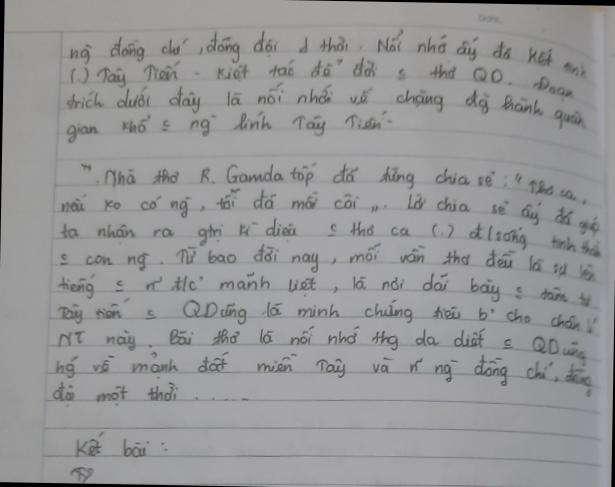 ng đồng chí, đồng đội 1 thời. Nỗi nhớ ấy đã kết tinh
(.) Tây Tiến - kiệt tác để đời s thơ QD. Đoạn
trích dưới đây là nỗi nhớ về chặng đg hành quân
gian khổ s ng lính Tây Tiến.
*. Nhà thơ R. Gamdatốp đã từng chia sẻ: " Thơ ca,
nếu ko có ng, tôi đã mồ côi ". Lời chia sẻ ấy đã giúp
ta nhận ra gtrị kì diệu s thơ ca (.) đ/sống tinh thần
s con ng. Từ bao đời nay, mỗi vần thơ đều là sự lên
tiếng s n~ t/c' mãnh liệt, là nơi dãi bày s tâm tư
Tây tiến s QDũng là minh chứng tiêu b' cho chân lí
NT này. Bài thơ là nỗi nhớ thg da diết s QDũng
hg về mảnh đất miền Tây và n~ ng đồng chí, đồng
đội một thời ......
Kết bài :